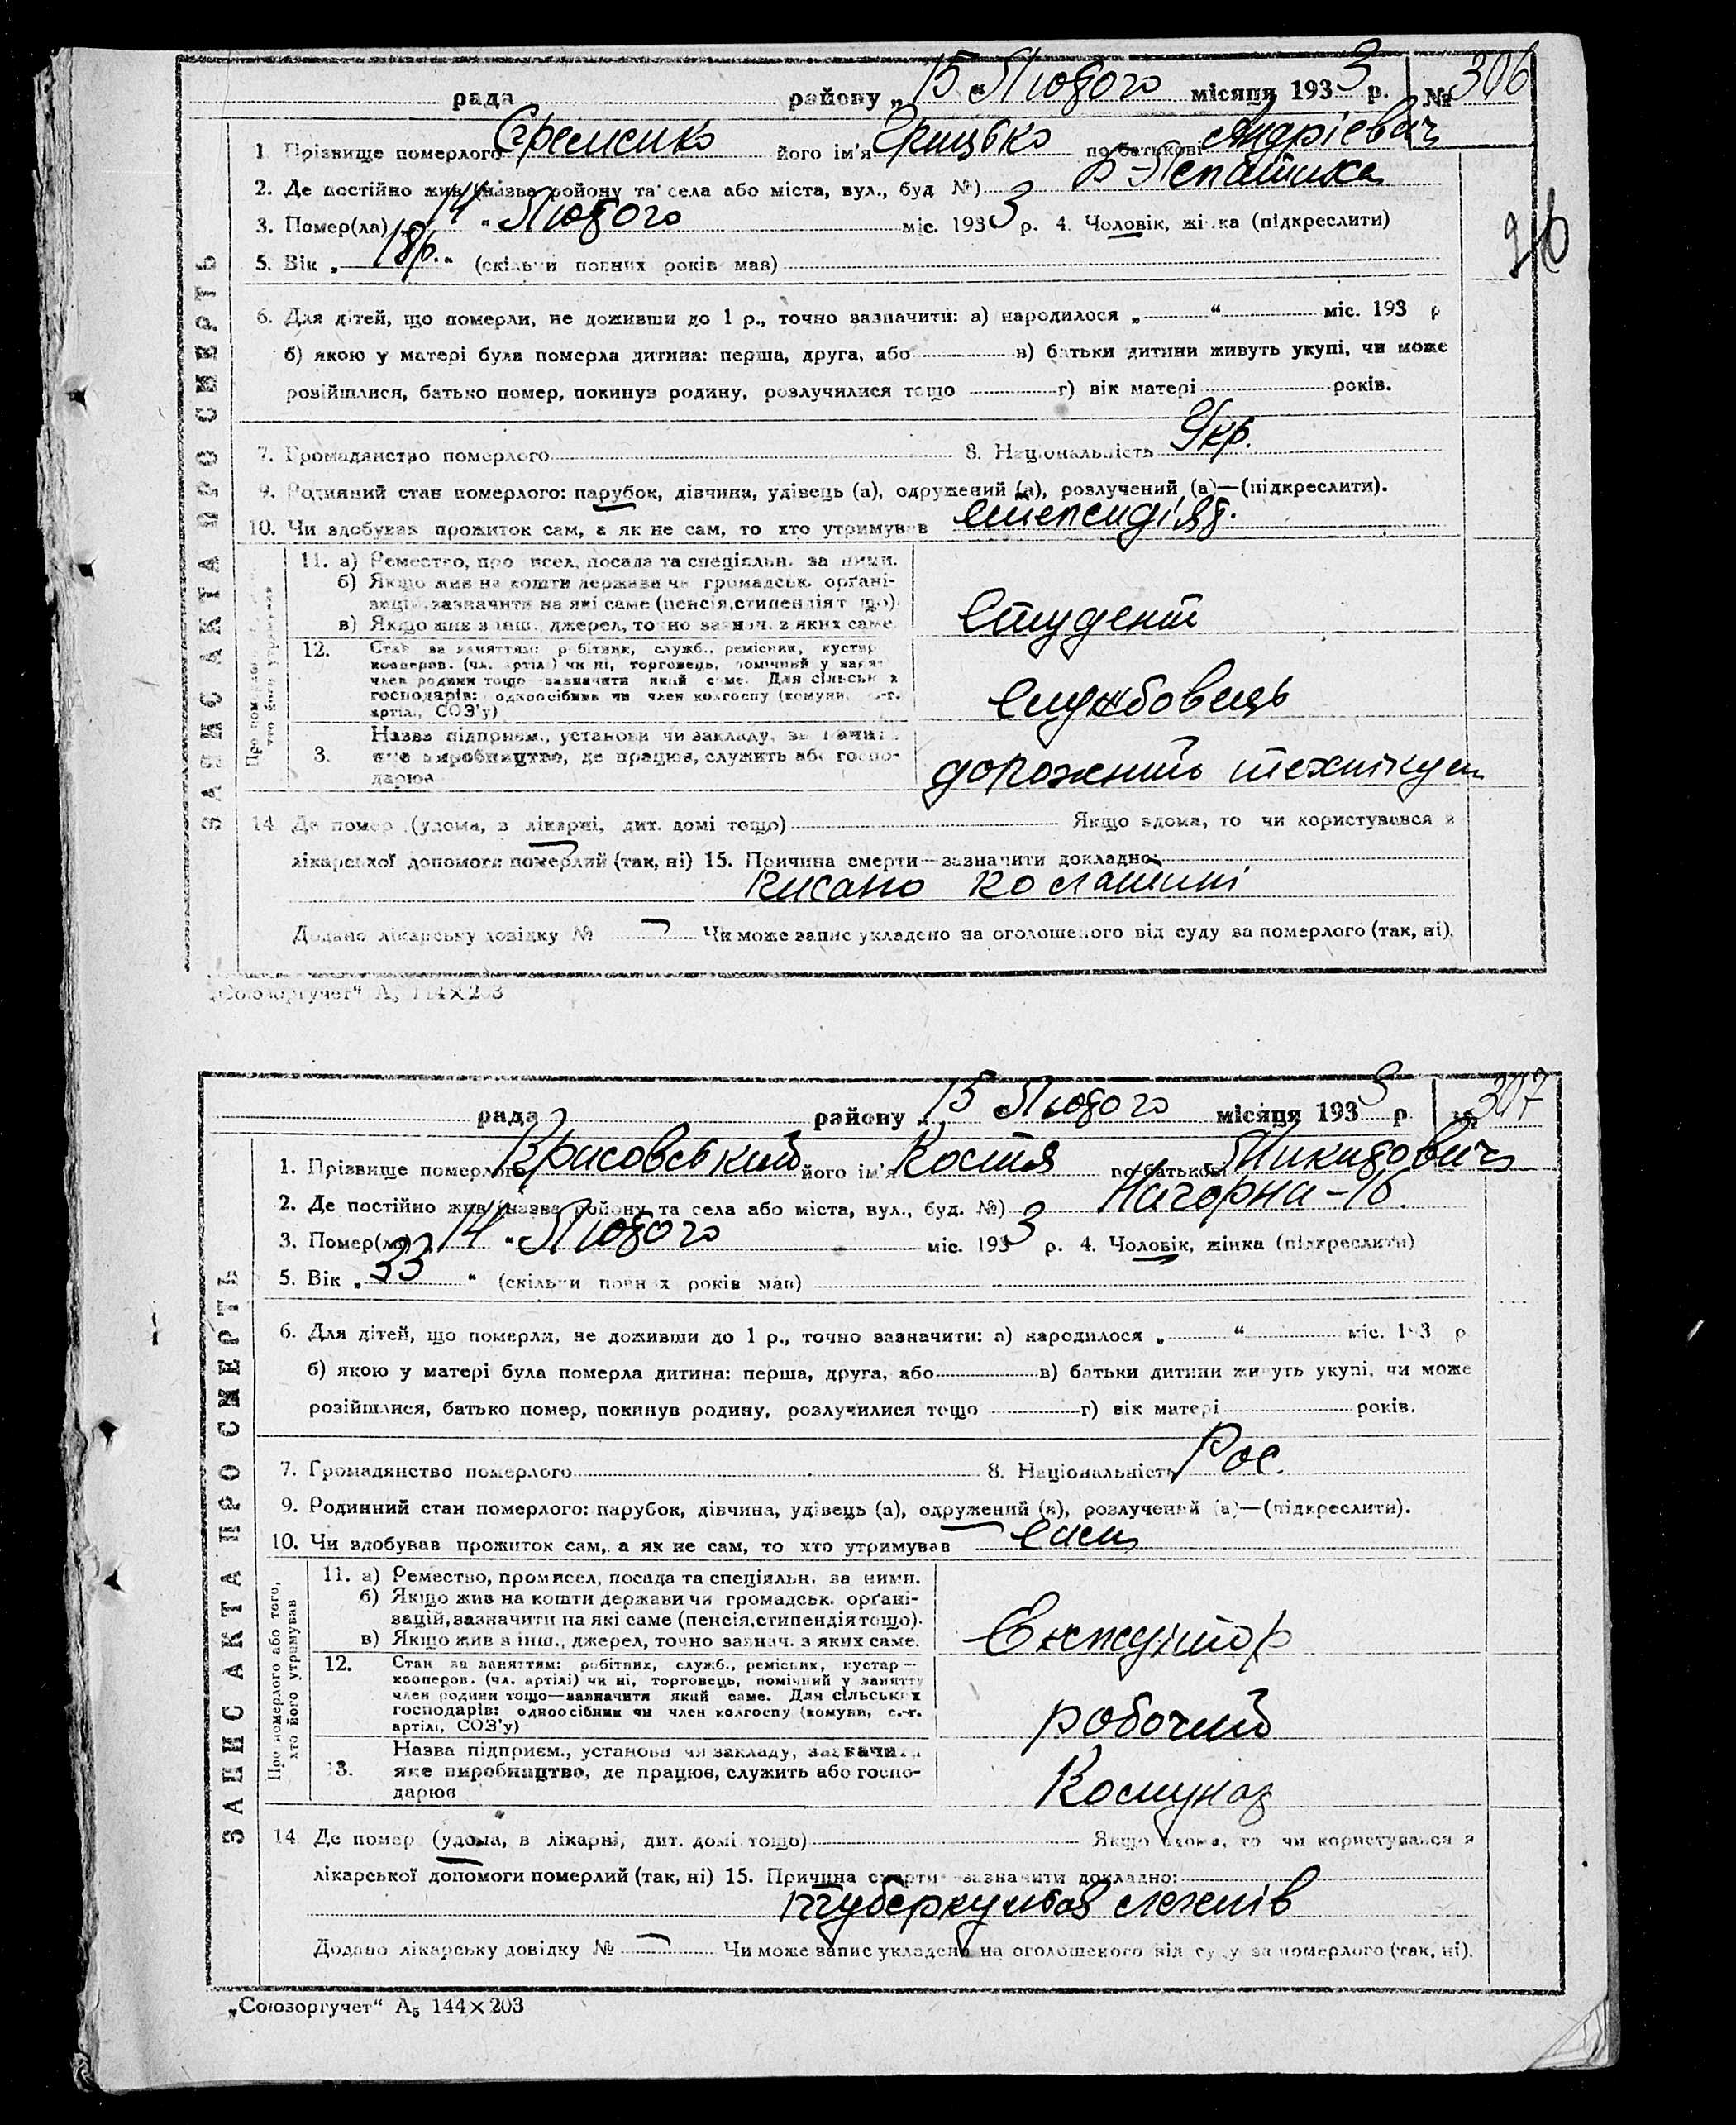 рада району „15“ Лютого місяця 1933 р. № 306
1 Прізвище померлого Єременко його ім'я Грицько по батькові Андрієвич
2. Де постійно жив (назва району та села або міста, вул., буд №)
3. Помер(ла) „14“ Лютого міс. 1933 р. 4. Чоловік, жінка (підкреслити)
96
5. Вік „18р.“ (скільки повних років мав)
6. Для дітей, що померли, не доживши до 1 р., точно зазначити: а) народилося „ “ міс. 193 р
б) якою у матері була померла дитина: перша, друга, або в) батьки дитини живуть укупі, чи може
розійшлися, батько помер, покинув родину, розлучилися тощо г) вік матері років.
7. Громадянство померлого 8. Національність Укр.
9. Родинний стан померлого: парубок, дівчина, удівець (а), одружений (а), розлучений (а)—(підкреслити).
10. Чи здобував прожиток сам, а як не сам, то хто утримував
11. а) Ремество, промисел, посада та спеціяльн. за ними.
б) Якщо жив на кошти держави чи громадськ. орґані-
зацій, зазначити на які саме (пенсія, стипендія тощо).
в) Якщо жив з інш., джерел, точно зазнач. з яких саме.
Студент
12. Стан за заняттям: робітник, служб., ремісник, кустар
кооперов. (чл. артілі) чи ні, торговець, помічний у занят
член родини тощо зазначити який саме. Для сільських
господарів: одноосібник чи член колгоспу (комуни, с.-г.
артілі, СОЗ'у)
Службовець
3. Назва підприєм., установи чи закладу, зазначити
яке виробництво, де працює, служить або госпо-
дарює
дорожний технікум
14. Де помер (удома, в лікарні, дит. домі тощо) Якщо вдома, то чи користувався з
лікарської допомоги померлий (так, ні) 15. Причина смерти—зазначити докладно:
Додано лікарську довідку № Чи може запис укладено на оголошеного від суду за померлого (так, ні).
ЗАПИС АКТА ПРО СМЕРТЬ
„Союзоргучет“ А5 144×203
рада району „15“ Лютого місяця 1933 р № 307
1. Прізвище померлого Крисовський його ім'я Костя по батькові Микитович
2. Де постійно жив (назва району та села або міста, вул., буд. №) Нагорна-16.
3. Помер(ла) „14“ Лютого міс. 1933 р. 4. Чоловік, жінка (підкреслити)
5. Вік „33“ (скільки повних років мав)
6. Для дітей, що померли, не доживши до 1 р., точно зазначити: а) народилося „ “ міс. 193 р
б) якою у матері була померла дитина: перша, друга, або в) батьки дитини живуть укупі, чи може
розійшлися, батько помер, покинув родину, розлучилися тощо г) вік матері років.
7. Громадянство померлого 8. Національність Рос.
9. Родинний стан померлого: парубок, дівчина, удівець (а), одружений (а), розлучений (а)—(підкреслити).
10. Чи здобував прожиток сам, а як не сам, то хто утримував Сам
Про померлого або того,
хто його утримував
11. а) Ремество, промисел, посада та спеціяльн. за ними.
б) Якщо жив на кошти держави чи громадськ. орґані-
зацій, зазначити на які саме (пенсія, стипендія тощо).
в) Якщо жив з інш., джерел, точно зазнач. з яких саме.
12. Стан за заняттям: робітник, служб., ремісник, кустар—
кооперов. (чл. артілі) чи ні, торговець, помічний у занятту
член родини тощо—зазначити який саме. Для сільських
господарів: одноосібник чи член колгоспу (комуни, с.-г.
артілі, СОЗ'у)
робочий
13. Назва підприєм., установи чи закладу, зазначити
яке виробництво, де працює, служить або госпо-
дарює
Комунар
14. Де помер (удома, в лікарні, дит. домі тощо) Якщо вдома, то чи користувався з
лікарської допомоги померлий (так, ні) 15. Причина смерти—зазначити докладно:
туберкульоз легенів
Додано лікарську довідку № Чи може запис укладено на оголошеного від суду за померлого (так, ні).
ЗАПИС АКТА ПРО СМЕРТЬ
„Союзоргучет“ А5 144×203